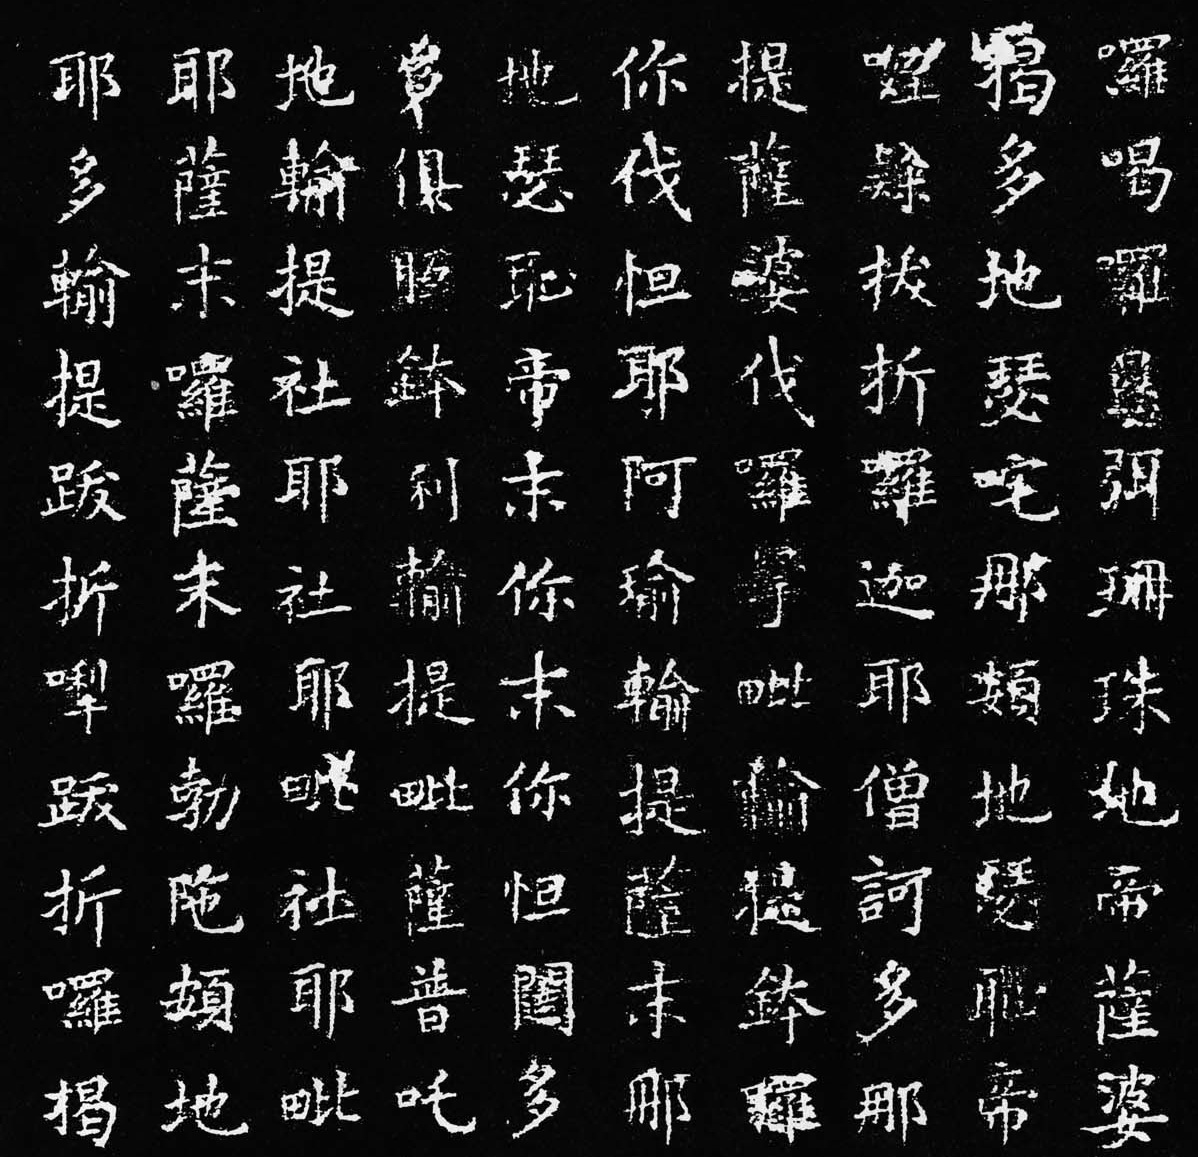 囉喝囉曼弭珊珠地帝薩婆
羯多地瑟咤那頞地瑟恥帝
拔折囉迦耶僧訶多那
提薩婆伐囉孥毗輸提鉢囉
你伐怛耶阿瑜輸提薩末那
地瑟恥帝末你末你怛闥多
俱胝鉢利輸提毗薩普吒
地輸提社耶社耶毗社耶毗
耶薩末囉薩末囉勃陁頞地
耶多輸提跋折犁跋折囉揭